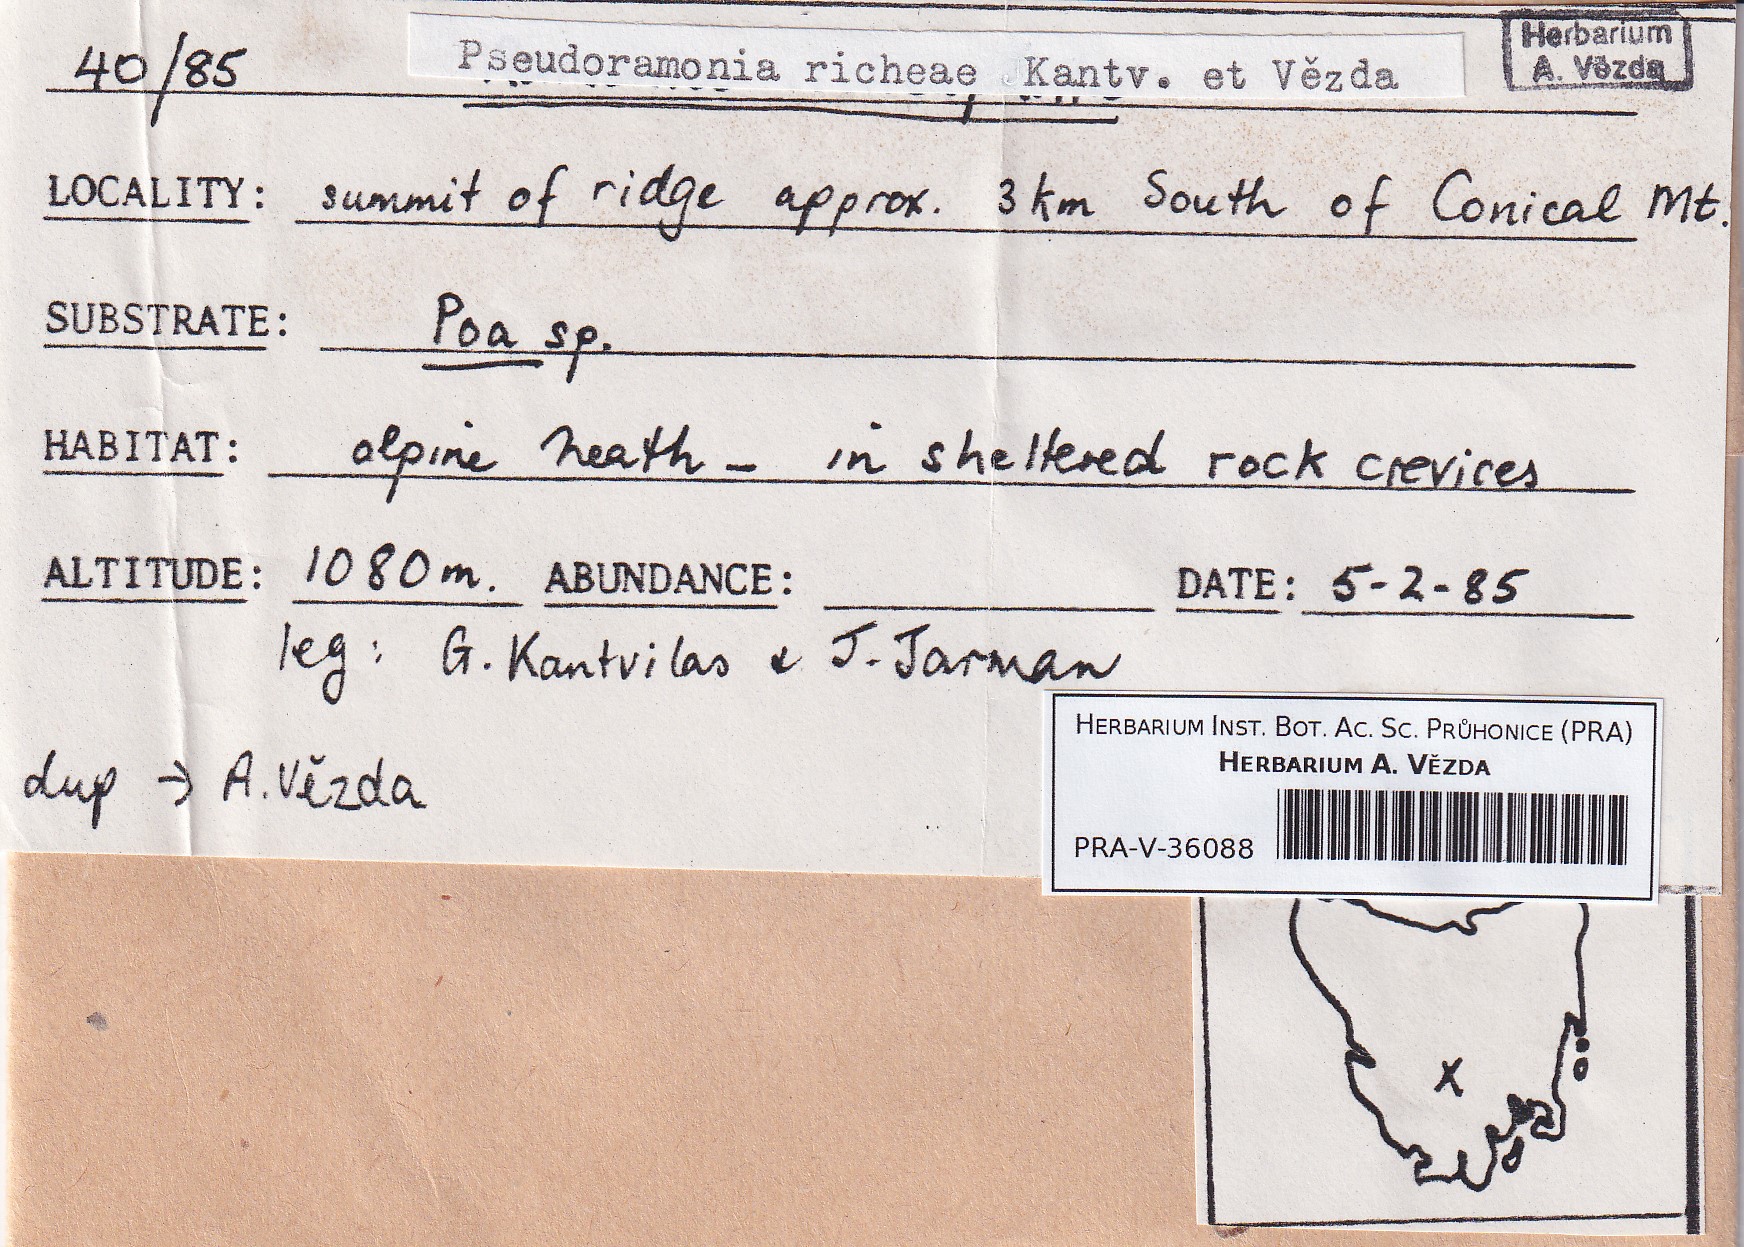 40/85
Pseudoramonia richeae Kantv. et Vězda
Herbarium
A. Vězda
LOCALITY: summit of ridge approx. 3 km South of Conical Mt.
SUBSTRATE: Poa sp.
HABITAT: alpine heath - in sheltered rock crevices
ALTITUDE: 1080 m. ABUNDANCE: DATE: 5-2-85
leg: G. Kantvilas & J. Jarman
dup → A. Vězda
HERBARIUM INST. BOT. AC. SC. PRŮHONICE (PRA)
HERBARIUM A. VĚZDA
PRA-V-36088
X